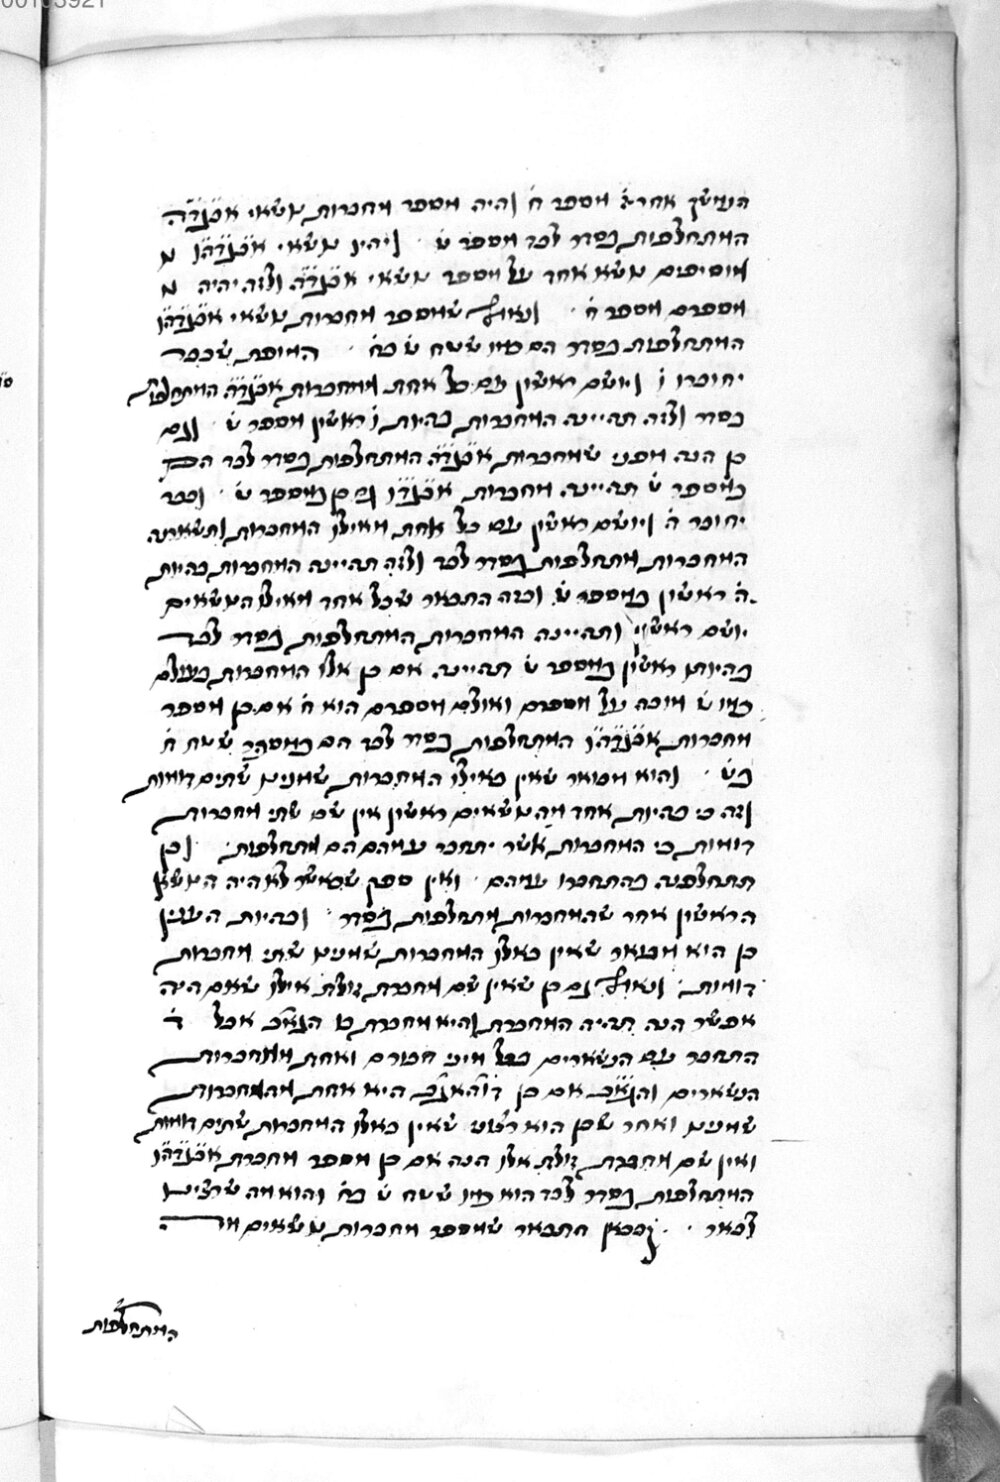 הנמשך אחריו מספר ח והיה מספר מחברות משאי אבגדה
המתחלפות בסדר לבד מספר ש׳ ויהיו משאי אבגדהו מ
מוסיפים משא אחד על מספר משאי אבגדה ולזה יהיה מ
מספרם מספר ח׳ ונאמר שמספר מחברות משאי אבגדהו
המתחלפות בסדר הם כמו ששח ש׳ בח׳ המופת שכבר
יחוברו ו ויושם ראשון עם כל אחת ממחברות אבגדה המתחלפות
בסדר ולזה תהיינה המחברות בהיות ו ראשון מספר ש׳ וגם
כן הנה מפני שמחברות אבגדה המתחלפות בסדר לבד הם
כמספר ש׳ תהיינה מחברות אבגדו גם כן כמספר ש׳ וכבר
יחובר ה׳ ויושם ראשון עם כל אחת מאילו המחברות ותשארנה
המחברות מתחלפות בסדר לבד ולזה תהיינה המחברות בהיות
ה׳ ראשון כמספר ש׳ וכזה התבאר שכל אחד מאילו המשאים
יושם ראשון ותהיינה המחברות המתחלפות בסדר לבד
בהיותו ראשון כמספר ש׳ תהיינה אם כן אלו המחברות בעולם
כמו ש׳ מוכה על מספרם ואולם מספרם הוא ח׳ אם כן מספר
מחברות אבגדהו המתחלפות בסדר לבד הם כמספר ששח ח׳
בש׳ והוא מבואר שאין באילו המחברות שמנינו שתים דומות
וזה כי בהיות אחד מהמשאים ראשון אין שם שתי מחברות
דומות כי המחברות אשר יתחבר עמהם הם מתחלפות וכן
תתחלפנה בהתחברו עמהם ואין ספק שכאשר לא היה המשא
הראשון אחד שהמחברות מתחלפות בסדר ובהיות הענין
כן הוא מבואר שאין באלו המחברות שמנינו שתי מחברות
דומות ונאמר גם כן שאין שם מחברת זולת אילו שאם היה
אפשר הנה תהיה המחברת והיא מחברת אבל ד׳
התחבר עם הנשארים בכל מיני חבורם ואחת ממחברות
הנשארים אם כן היא אחת מהמחברות
שמנינו ואחר שכן הוא רצוננו שאין באלו המחברות שתים דומות
ואין שם מחברת זולת אלו הנה אם כן מספר מחברת אבגדהו
המתחלפות בסדר לבד הוא כמו ששח ש׳ בח׳ והוא מה שרצינו
לבאר ובכאן התבאר שמספר מחברות משאים מה
המתחלפות